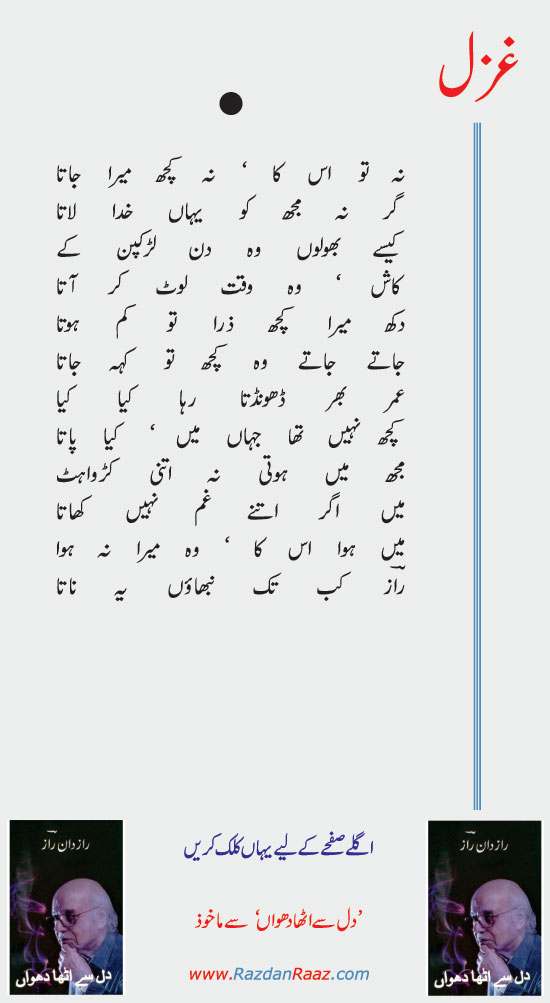 غزل
نہ تو اس کا ، نہ کچھ میرا جاتا
گر نہ مجھ کو یہاں خدا لاتا
کیسے بھولوں وہ دن لڑکپن کے
کاش ، وہ وقت لوٹ کر آتا
دکھ میرا کچھ ذرا تو کم ہوتا
جاتے جاتے وہ کچھ تو کہہ جاتا
عمر بھر ڈھونڈتا رہا کیا کیا
کچھ نہیں تھا جہاں میں ، کیا پاتا
مجھ میں ہوتی نہ اتنی کڑواہٹ
میں اگر اتنے غم نہیں کھاتا
میں ہوا اس کا ، وہ میرا نہ ہوا
رازؔ کب تک نبھاؤں یہ ناتا
اگلے صفحے کے لیے یہاں کلک کریں
’دل سے اٹھا دھواں‘ سے ماخوذ
www.RazdanRaaz.com
راز دان رازؔ
دل سے اٹھا دھواں
راز دان رازؔ
دل سے اٹھا دھواں